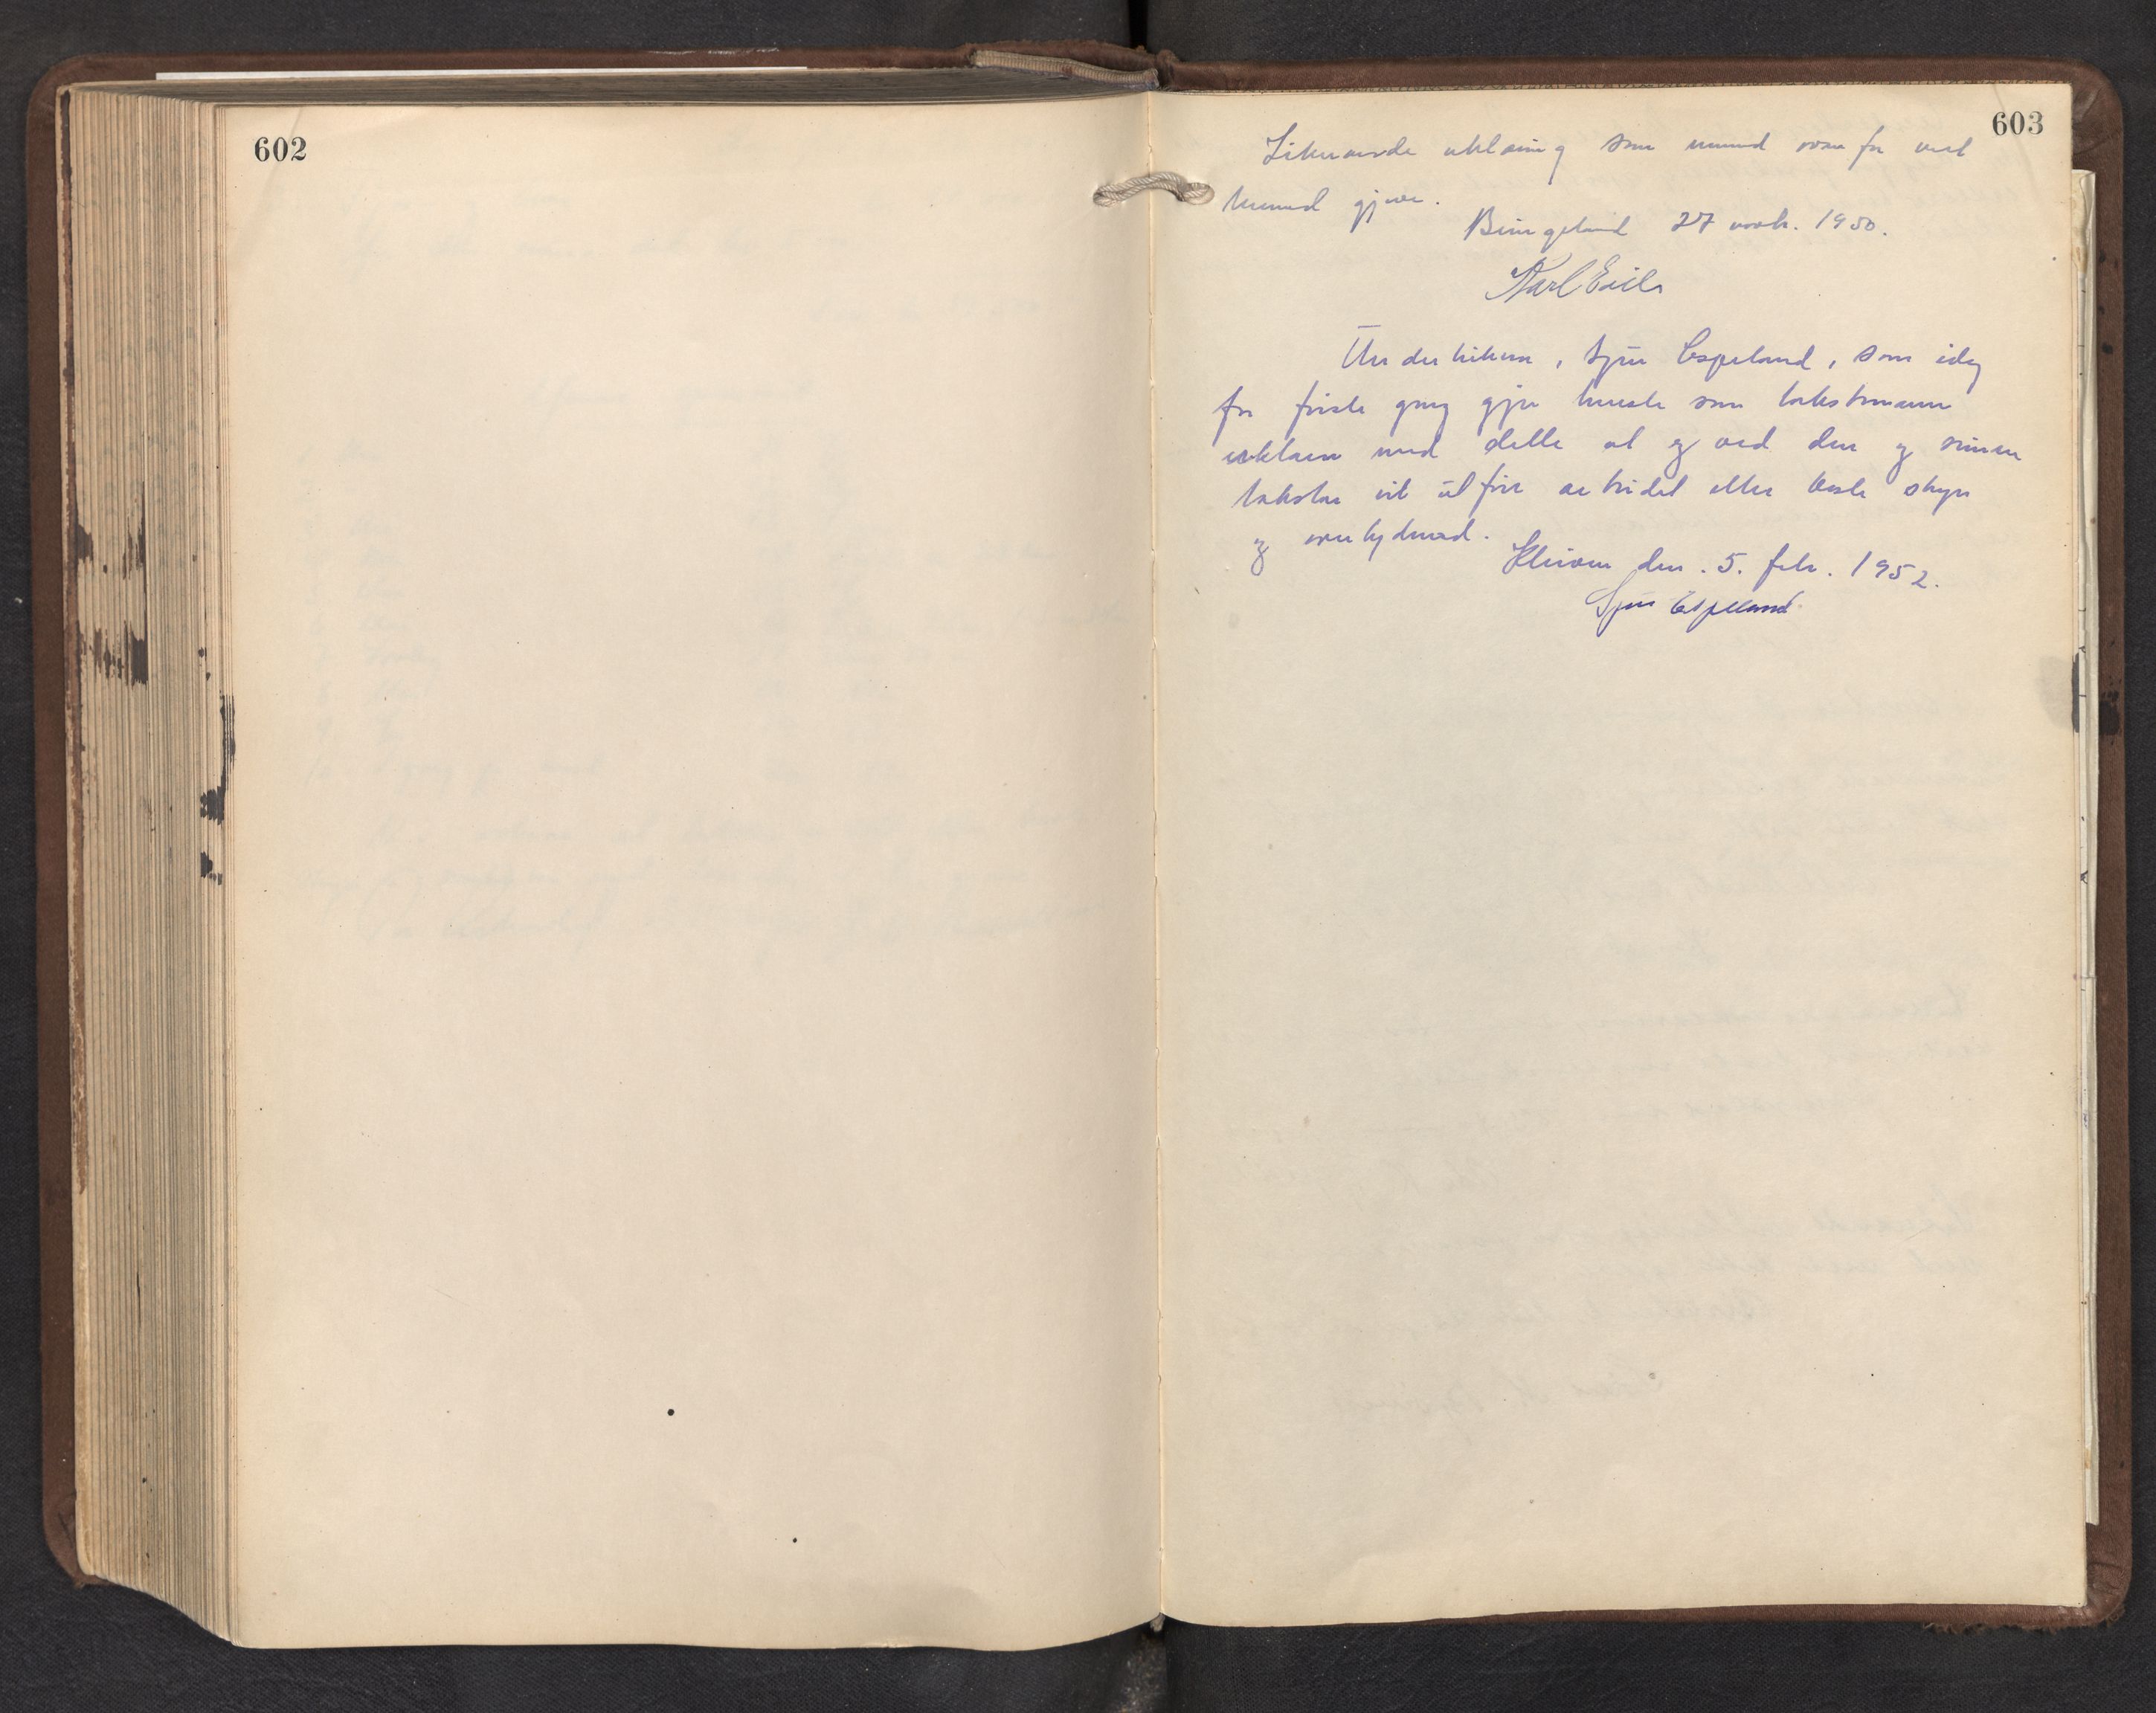 602
603
Liknande utklaring som nemnd ovanfor vert
herved gjeve.
Bringeland 27 novbr. 1950.
Karl Eide
Underteikna, Sjur Espeland, som idag
for fyrste gang gjer teneste som takstmann
erklærer med dette at eg ved den og seinare
takstar vil utföre arbeidet etter beste skyn
og overtydnad.
Kleiven den. 5. febr. 1952.
Sjur Espeland